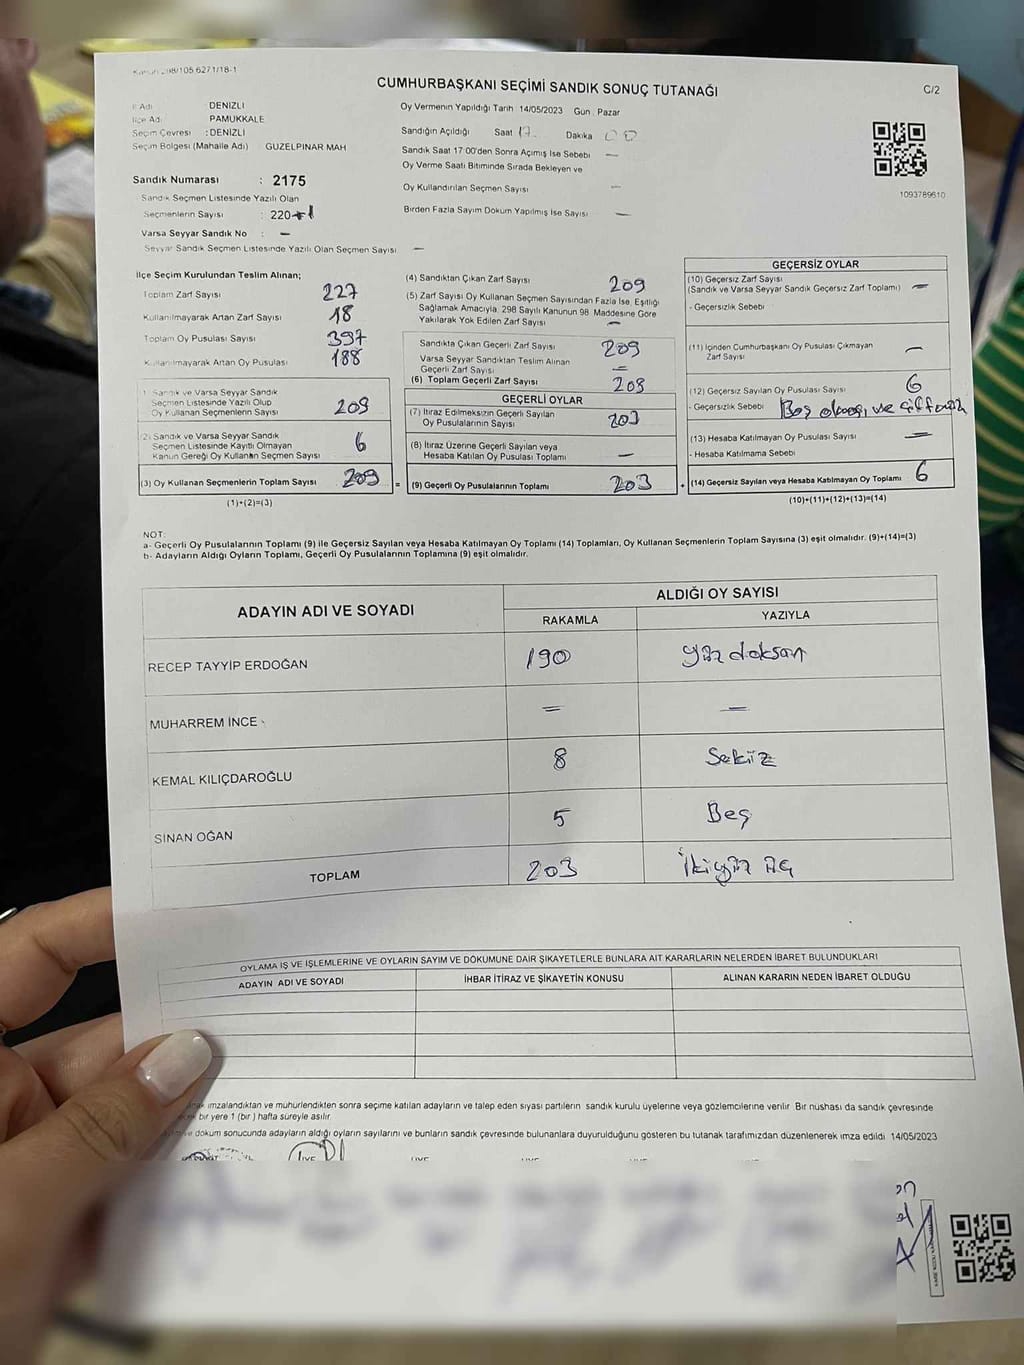 CUMHURBAŞKANI SEÇİMİ SANDIK SONUÇ TUTANAĞI
C/2
İl Adı : DENİZLİ
İlçe Adı PAMUKKALE
Seçim Çevresi : DENİZLİ
Seçim Bölgesi (Mahalle Adı) GÜZELPINAR MAH
Sandık Numarası : 2175
Sandık Seçmen Listesinde Yazılı Olan
Seçmenlerin Sayısı : 220
Varsa Seyyar Sandık No : —
Seyyar Sandık Seçmen Listesinde Yazılı Olan Seçmen Sayısı —
Oy Vermenin Yapıldığı Tarih 14/05/2023 Gün Pazar
Sandığın Açıldığı Saat 17. Dakika 00
Sandık Saat 17:00'den Sonra Açımış İse Sebebi —
Oy Verme Saati Bitiminde Sırada Bekleyen ve
Oy Kullandırılan Seçmen Sayısı —
Birden Fazla Sayım Döküm Yapılmış İse Sayısı —
1093789610
İlçe Seçim Kurulundan Teslim Alınan;
Toplam Zarf Sayısı 227
Kullanılmayarak Artan Zarf Sayısı 18
Toplam Oy Pusulası Sayısı 397
Kullanılmayarak Artan Oy Pusulası 188
1) Sandık ve Varsa Seyyar Sandık
Seçmen Listesinde Yazılı Olup
Oy Kullanan Seçmenlerin Sayısı 209
(2) Sandık ve Varsa Seyyar Sandık
Seçmen Listesinde Kayıtlı Olmayan
Kanun Gereği Oy Kullanan Seçmen Sayısı 6
(3) Oy Kullanan Seçmenlerin Toplam Sayısı 209 =
(1)+(2)=(3)
(4) Sandıktan Çıkan Zarf Sayısı 209
(5) Zarf Sayısı Oy Kullanan Seçmen Sayısından Fazla İse, Eşitliği
Sağlamak Amacıyla, 298 Sayılı Kanunun 98 Maddesine Göre
Yakılarak Yok Edilen Zarf Sayısı —
Sandıkta Çıkan Geçerli Zarf Sayısı 209
Varsa Seyyar Sandıktan Teslim Alınan
Geçerli Zarf Sayısı =
(6) Toplam Geçerli Zarf Sayısı 209
GEÇERLİ OYLAR
(7) İtiraz Edilmeksizin Geçerli Sayılan
Oy Pusulalarının Sayısı 203
(8) İtiraz Üzerine Geçerli Sayılan veya
Hesaba Katılan Oy Pusulası Toplamı —
(9) Geçerli Oy Pusulalarının Toplamı 203 +
GEÇERSİZ OYLAR
(10) Geçersiz Zarf Sayısı
(Sandık ve Varsa Seyyar Sandık Geçersiz Zarf Toplamı) —
- Geçersizlik Sebebi
(11) İçinden Cumhurbaşkanı Oy Pusulası Çıkmayan
Zarf Sayısı —
(12) Geçersiz Sayılan Oy Pusulası Sayısı 6
- Geçersizlik Sebebi Boş olması ve
(13) Hesaba Katılmayan Oy Pusulası Sayısı =
- Hesaba Katılmama Sebebi
(14) Geçersiz Sayılan veya Hesaba Katılmayan Oy Toplamı 6
(10)+(11)+(12)+(13)=(14)
NOT:
a- Geçerli Oy Pusulasının Toplamı (9) ile Geçersiz Sayılan veya Hesaba Katılmayan Oy Toplamı (14) Toplamları, Oy Kullanan Seçmenlerin Toplam Sayısına (3) eşit olmalıdır. (9)+(14)=(3)
b- Adayların Aldığı Oyların Toplamı, Geçerli Oy Pusulalarının Toplamına (9) eşit olmalıdır.
ADAYIN ADI VE SOYADI
ALDIĞI OY SAYISI
RAKAMLA YAZIYLA
RECEP TAYYİP ERDOĞAN 190 yüz doksan
MUHARREM İNCE = =
KEMAL KILIÇDAROĞLU 8 Sekiz
SİNAN OĞAN 5 Beş
TOPLAM 203 İkiyüz üç
OYLAMA İŞ VE İŞLEMLERİNE VE OYLARIN SAYIM VE DÖKÜMÜNE DAİR ŞİKAYETLERLE BUNLARA AİT KARARLARIN NELERDEN İBARET BULUNDUKLARI
ADAYIN ADI VE SOYADI İHBAR İTİRAZ VE ŞİKAYETİN KONUSU ALINAN KARARIN NEDEN İBARET OLDUĞU
imzalandıktan ve mühürlendikten sonra seçime katılan adayların ve talep eden siyasi partilerin sandık kurulu üyelerine veya gözlemcilerine verilir Bir nüshası da sandık çevresinde
bir yere 1 (bir) hafta süreyle asılır
ve döküm sonucunda adayların aldığı oyların sayılarını ve bunların sandık çevresinde bulunanlara duyurulduğunu gösteren bu tutanak tarafımızdan düzenlenerek imza edildi 14/05/2023